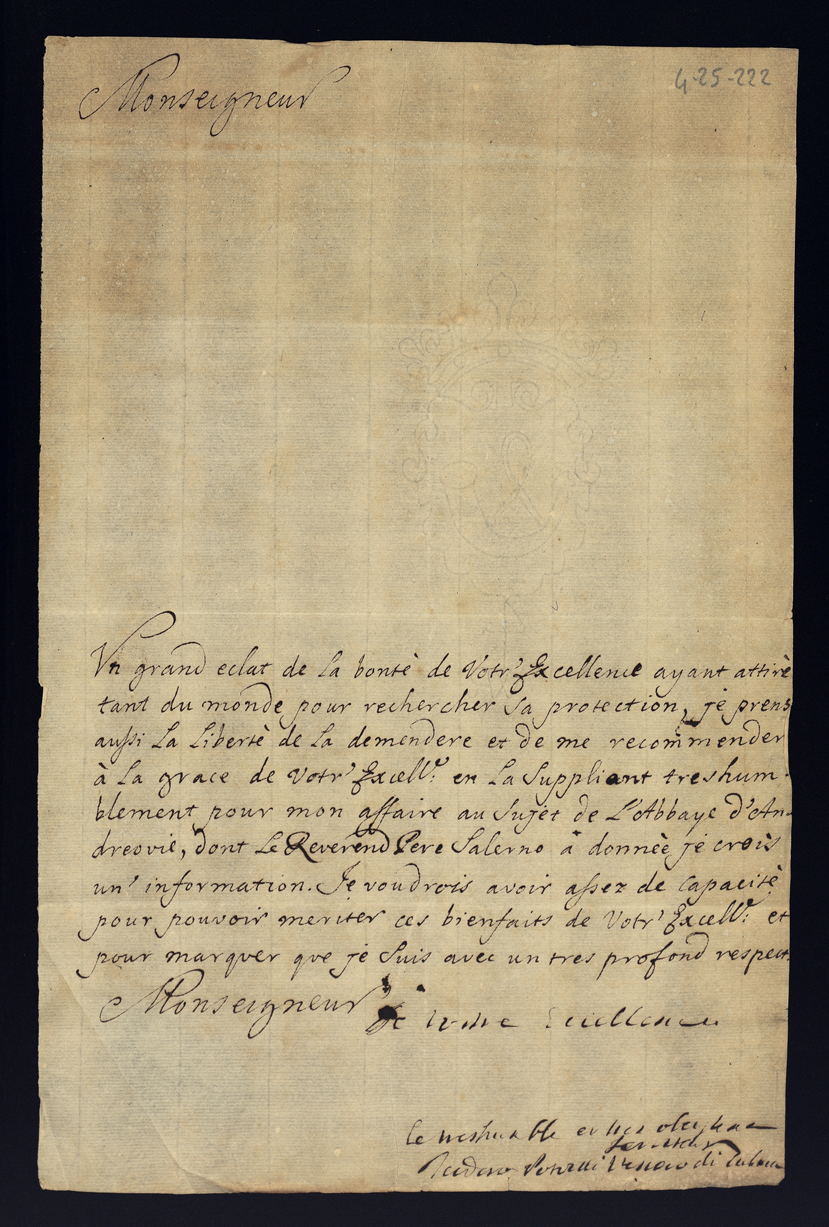 4-25-222
Monseigneur
Un grand eclat de la bontè de Votr' Excellence ayant attirè
tant du monde pour rechercher sa protection, je prens
aussi la libertè de la demendere et de me recommender
à la grace de Votr' Excell.e en la suppliant treshum-
blement pour mon affaire au sujet de l'Abbaye d'An-
dreovie, dont le Reverend Pere Salerno à donnèe je crois
un' information. Je voudrois avoir assez de capacitè
pour pouvoir meriter ces bienfaits de Votr' Excell.e et
pour marquer que je suis avec un tres profond respect.
Monseigneur
de votre Excellence
le treshumble et tres obeissant
serviteur